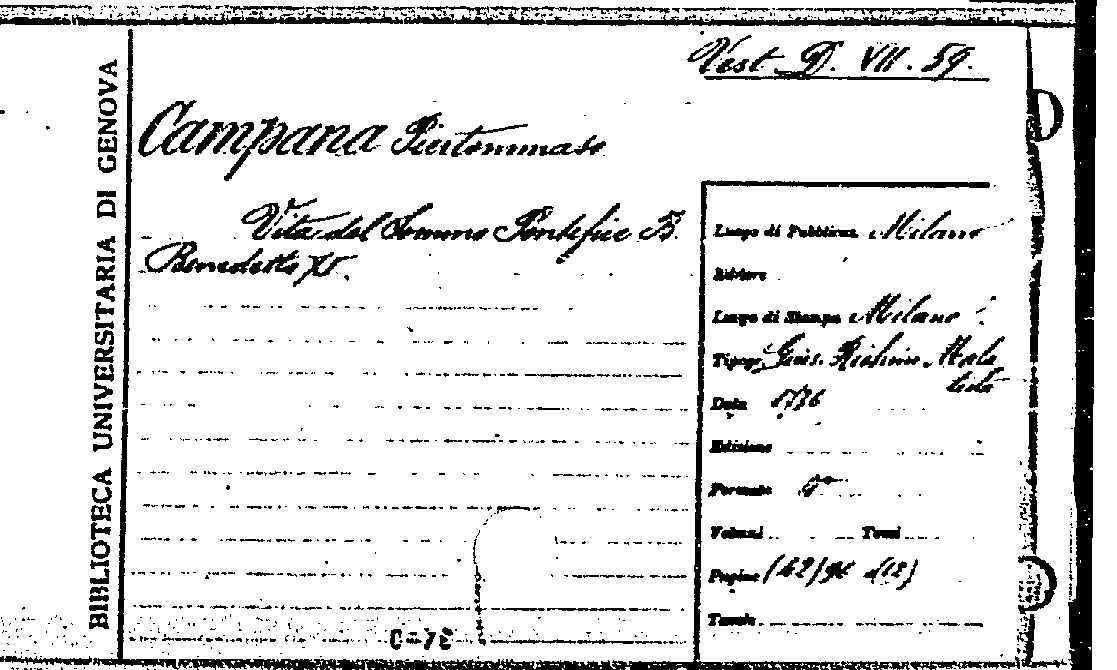 BIBLIOTECA UNIVERSITARIA DI GENOVA
Vest. D. VII. 59.
Campana Piertommaso
Vita del Sommo Pontefice B.
Benedetto XI.
Luogo di Pubblicaz. Milano
Editore
Luogo di Stampa Milano
Tipogr. Gius. Richini Mala
testa
Data 1736
Edizione
Formato
Volumi Tomi
Pagine
Tavole